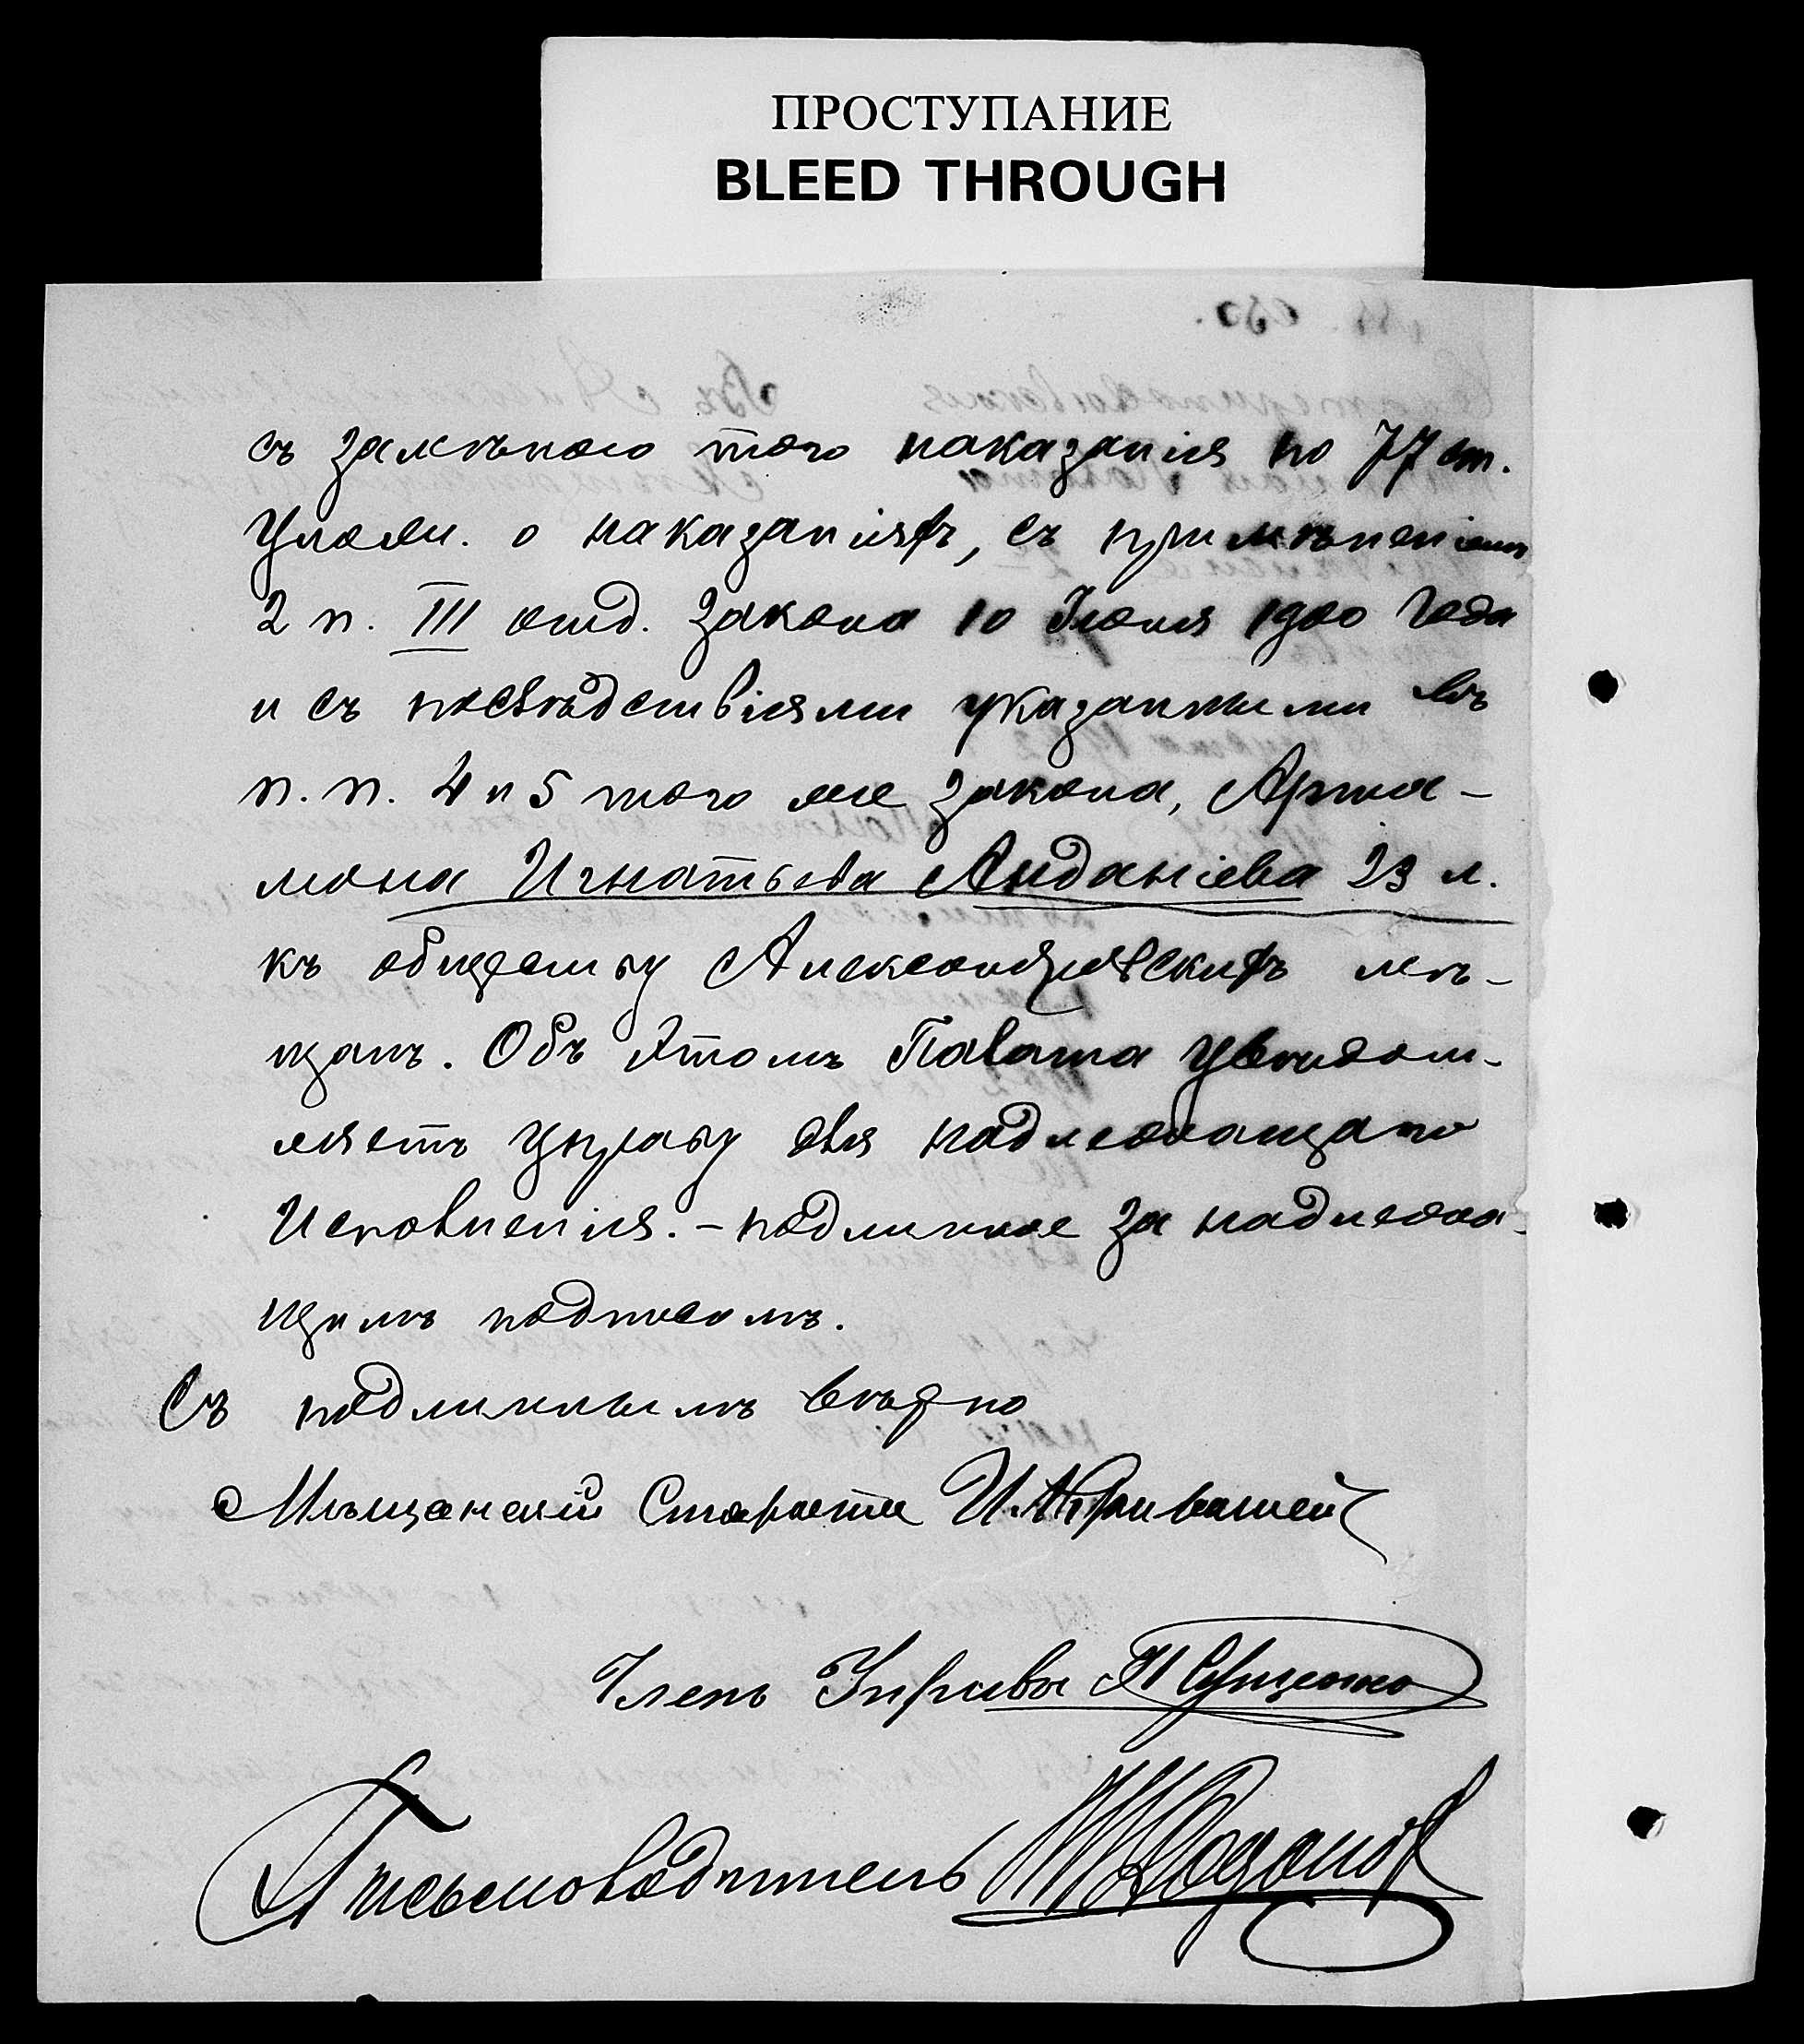 ПРОСТУПАНИЕ
BLEED THROUGH
съ замѣною того наказанія по 77 ст.
Улож. о наказаніяхъ, съ примѣненіемъ
2 п. III отд. закона 10 Іюня 1900 года
и съ послѣдствіями указанными въ
п. п. 4 и 5 того же закона, Арта-
мона Игнатьева Анданіева 23 л.
къ обществу Александрійскихъ мѣ-
щанъ. Объ этомъ Палата увѣдом-
ляетъ управу для надлежащаго
исполненія. - подлинное за надлежа-
щимъ подписомъ.
Съ подлиннымъ вѣрно
Мѣщанскій Староста И.
Членъ Управы П Сущенко
Письмоводитель